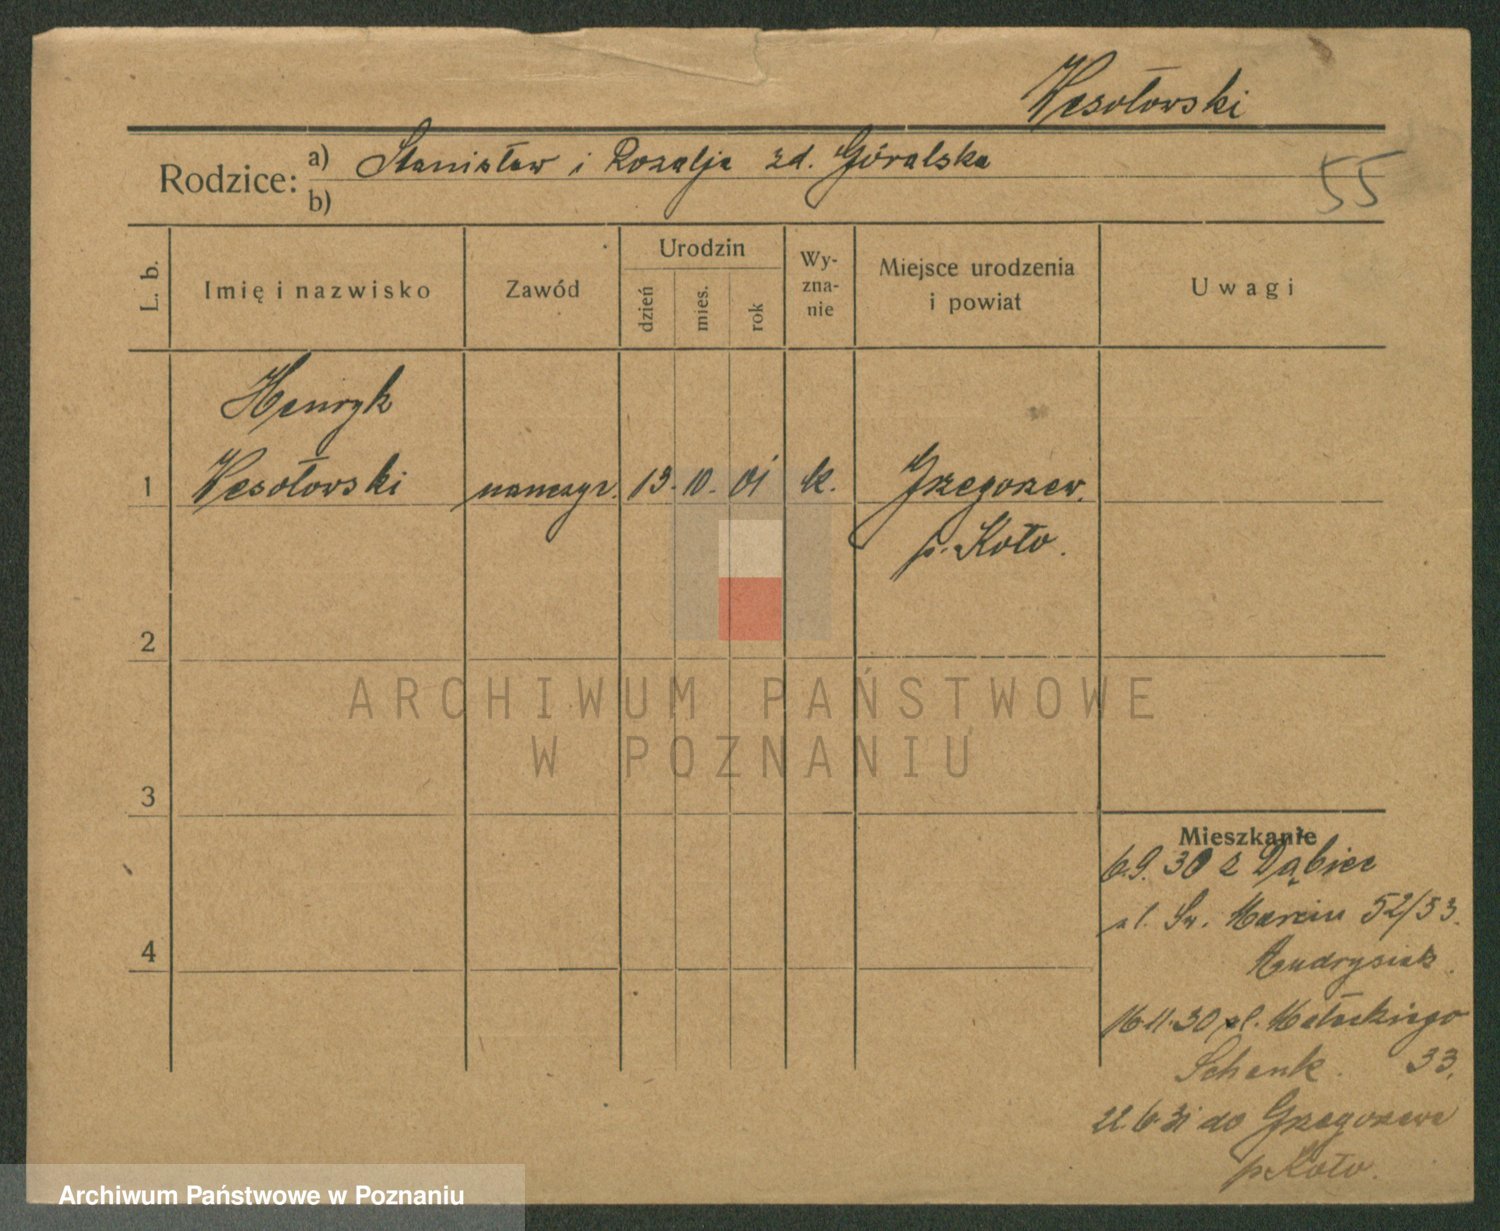 Wesołowski
Rodzice: a) Stanisław i Rozalja zd. Góralska
b)
55
L. b. Imię i nazwisko Zawód Urodzin dzień mies. rok Wy-zna-nie Miejsce urodzenia i powiat Uwagi
Henryk
1 Wesołowski nauczyc. 13. 10. 01 k. Grzegorzew.
p. Koło.
2
3
4
Mieszkanie
6.9.30 z Dąbiec
ul. Św. Marcin 52/53.
Andrysiak.
16.11.30 ul. Małeckiego
Schenk. 33.
22.6.31 do Grzegorzewa
p. Koło.
ARCHIWUM PAŃSTWOWE
W POZNANIU
Archiwum Państwowe w Poznaniu